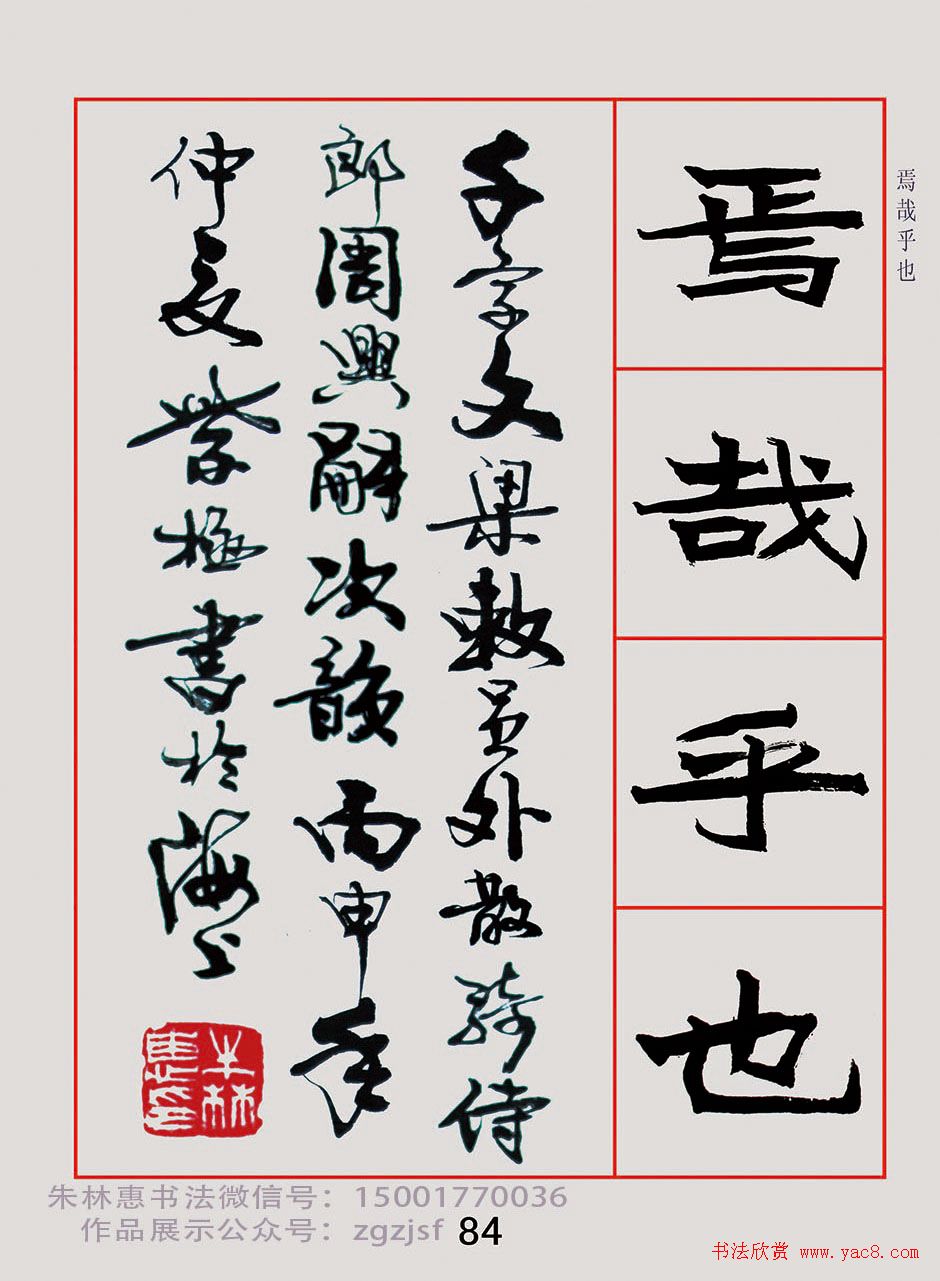 焉哉乎也
焉
哉
乎
也
千字文梁敕員外散騎侍
郎周興嗣次韻丙申年
仲夏紫極書於海上
朱林惠印
朱林惠书法微信号：15001770036
作品展示公众号：zgzjsf
84
书法欣赏 www.yac8.com